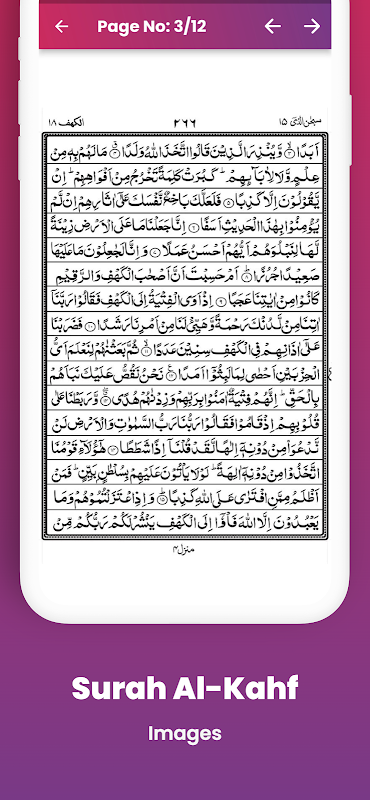 Page No: 3/12
الكهف ۱۸ ۲۶۶ سبحٰن الذی ۱۵
اَبَدًا ۙ﴿۳﴾ وَّيُنْذِرَ الَّذِيْنَ قَالُوا اتَّخَذَ اللّٰهُ وَلَدًا ۗ﴿۴﴾ مَا لَهُمْ بِهٖ مِنْ
عِلْمٍ وَّلَا لِاٰبَآئِهِمْ ؕ كَبُرَتْ كَلِمَةً تَخْرُجُ مِنْ اَفْوَاهِهِمْ ؕ اِنْ
يَّقُوْلُوْنَ اِلَّا كَذِبًا ﴿۵﴾ فَلَعَلَّكَ بَاخِعٌ نَّفْسَكَ عَلٰٓى اٰثَارِهِمْ اِنْ لَّمْ
يُؤْمِنُوْا بِهٰذَا الْحَدِيْثِ اَسَفًا ﴿۶﴾ اِنَّا جَعَلْنَا مَا عَلَى الْاَرْضِ زِيْنَةً
لَّهَا لِنَبْلُوَهُمْ اَيُّهُمْ اَحْسَنُ عَمَلًا ﴿۷﴾ وَاِنَّا لَجٰعِلُوْنَ مَا عَلَيْهَا
صَعِيْدًا جُرُزًا ؕ﴿۸﴾ اَمْ حَسِبْتَ اَنَّ اَصْحٰبَ الْكَهْفِ وَالرَّقِيْمِ
كَانُوْا مِنْ اٰيٰتِنَا عَجَبًا ﴿۹﴾ اِذْ اَوَى الْفِتْيَةُ اِلَى الْكَهْفِ فَقَالُوْا رَبَّنَاۤ
اٰتِنَا مِنْ لَّدُنْكَ رَحْمَةً وَّهَيِّئْ لَنَا مِنْ اَمْرِنَا رَشَدًا ﴿۱۰﴾ فَضَرَبْنَا
عَلٰٓى اٰذَانِهِمْ فِى الْكَهْفِ سِنِيْنَ عَدَدًا ۙ﴿۱۱﴾ ثُمَّ بَعَثْنٰهُمْ لِنَعْلَمَ اَىُّ
الْحِزْبَيْنِ اَحْصٰى لِمَا لَبِثُوْۤا اَمَدًا ﴿۱۲﴾ نَحْنُ نَقُصُّ عَلَيْكَ نَبَاَهُمْ
بِالْحَقِّ ؕ اِنَّهُمْ فِتْيَةٌ اٰمَنُوْا بِرَبِّهِمْ وَزِدْنٰهُمْ هُدًى ۖ﴿۱۳﴾ وَّرَبَطْنَا عَلٰى
قُلُوْبِهِمْ اِذْ قَامُوْا فَقَالُوْا رَبُّنَا رَبُّ السَّمٰوٰتِ وَالْاَرْضِ لَنْ
نَّدْعُوَا۟ مِنْ دُوْنِهٖۤ اِلٰهًا لَّقَدْ قُلْنَاۤ اِذًا شَطَطًا ﴿۱۴﴾ هٰۤؤُلَآءِ قَوْمُنَا
اتَّخَذُوْا مِنْ دُوْنِهٖۤ اٰلِهَةً ؕ لَوْلَا يَاْتُوْنَ عَلَيْهِمْ بِسُلْطٰنٍۢ بَيِّنٍ ؕ فَمَنْ
اَظْلَمُ مِمَّنِ افْتَرٰى عَلَى اللّٰهِ كَذِبًا ؕ﴿۱۵﴾ وَاِذِ اعْتَزَلْتُمُوْهُمْ وَمَا
يَعْبُدُوْنَ اِلَّا اللّٰهَ فَاْوٗۤا اِلَى الْكَهْفِ يَنْشُرْ لَكُمْ رَبُّكُمْ مِّنْ
منزل ۴
Surah Al-Kahf
Images